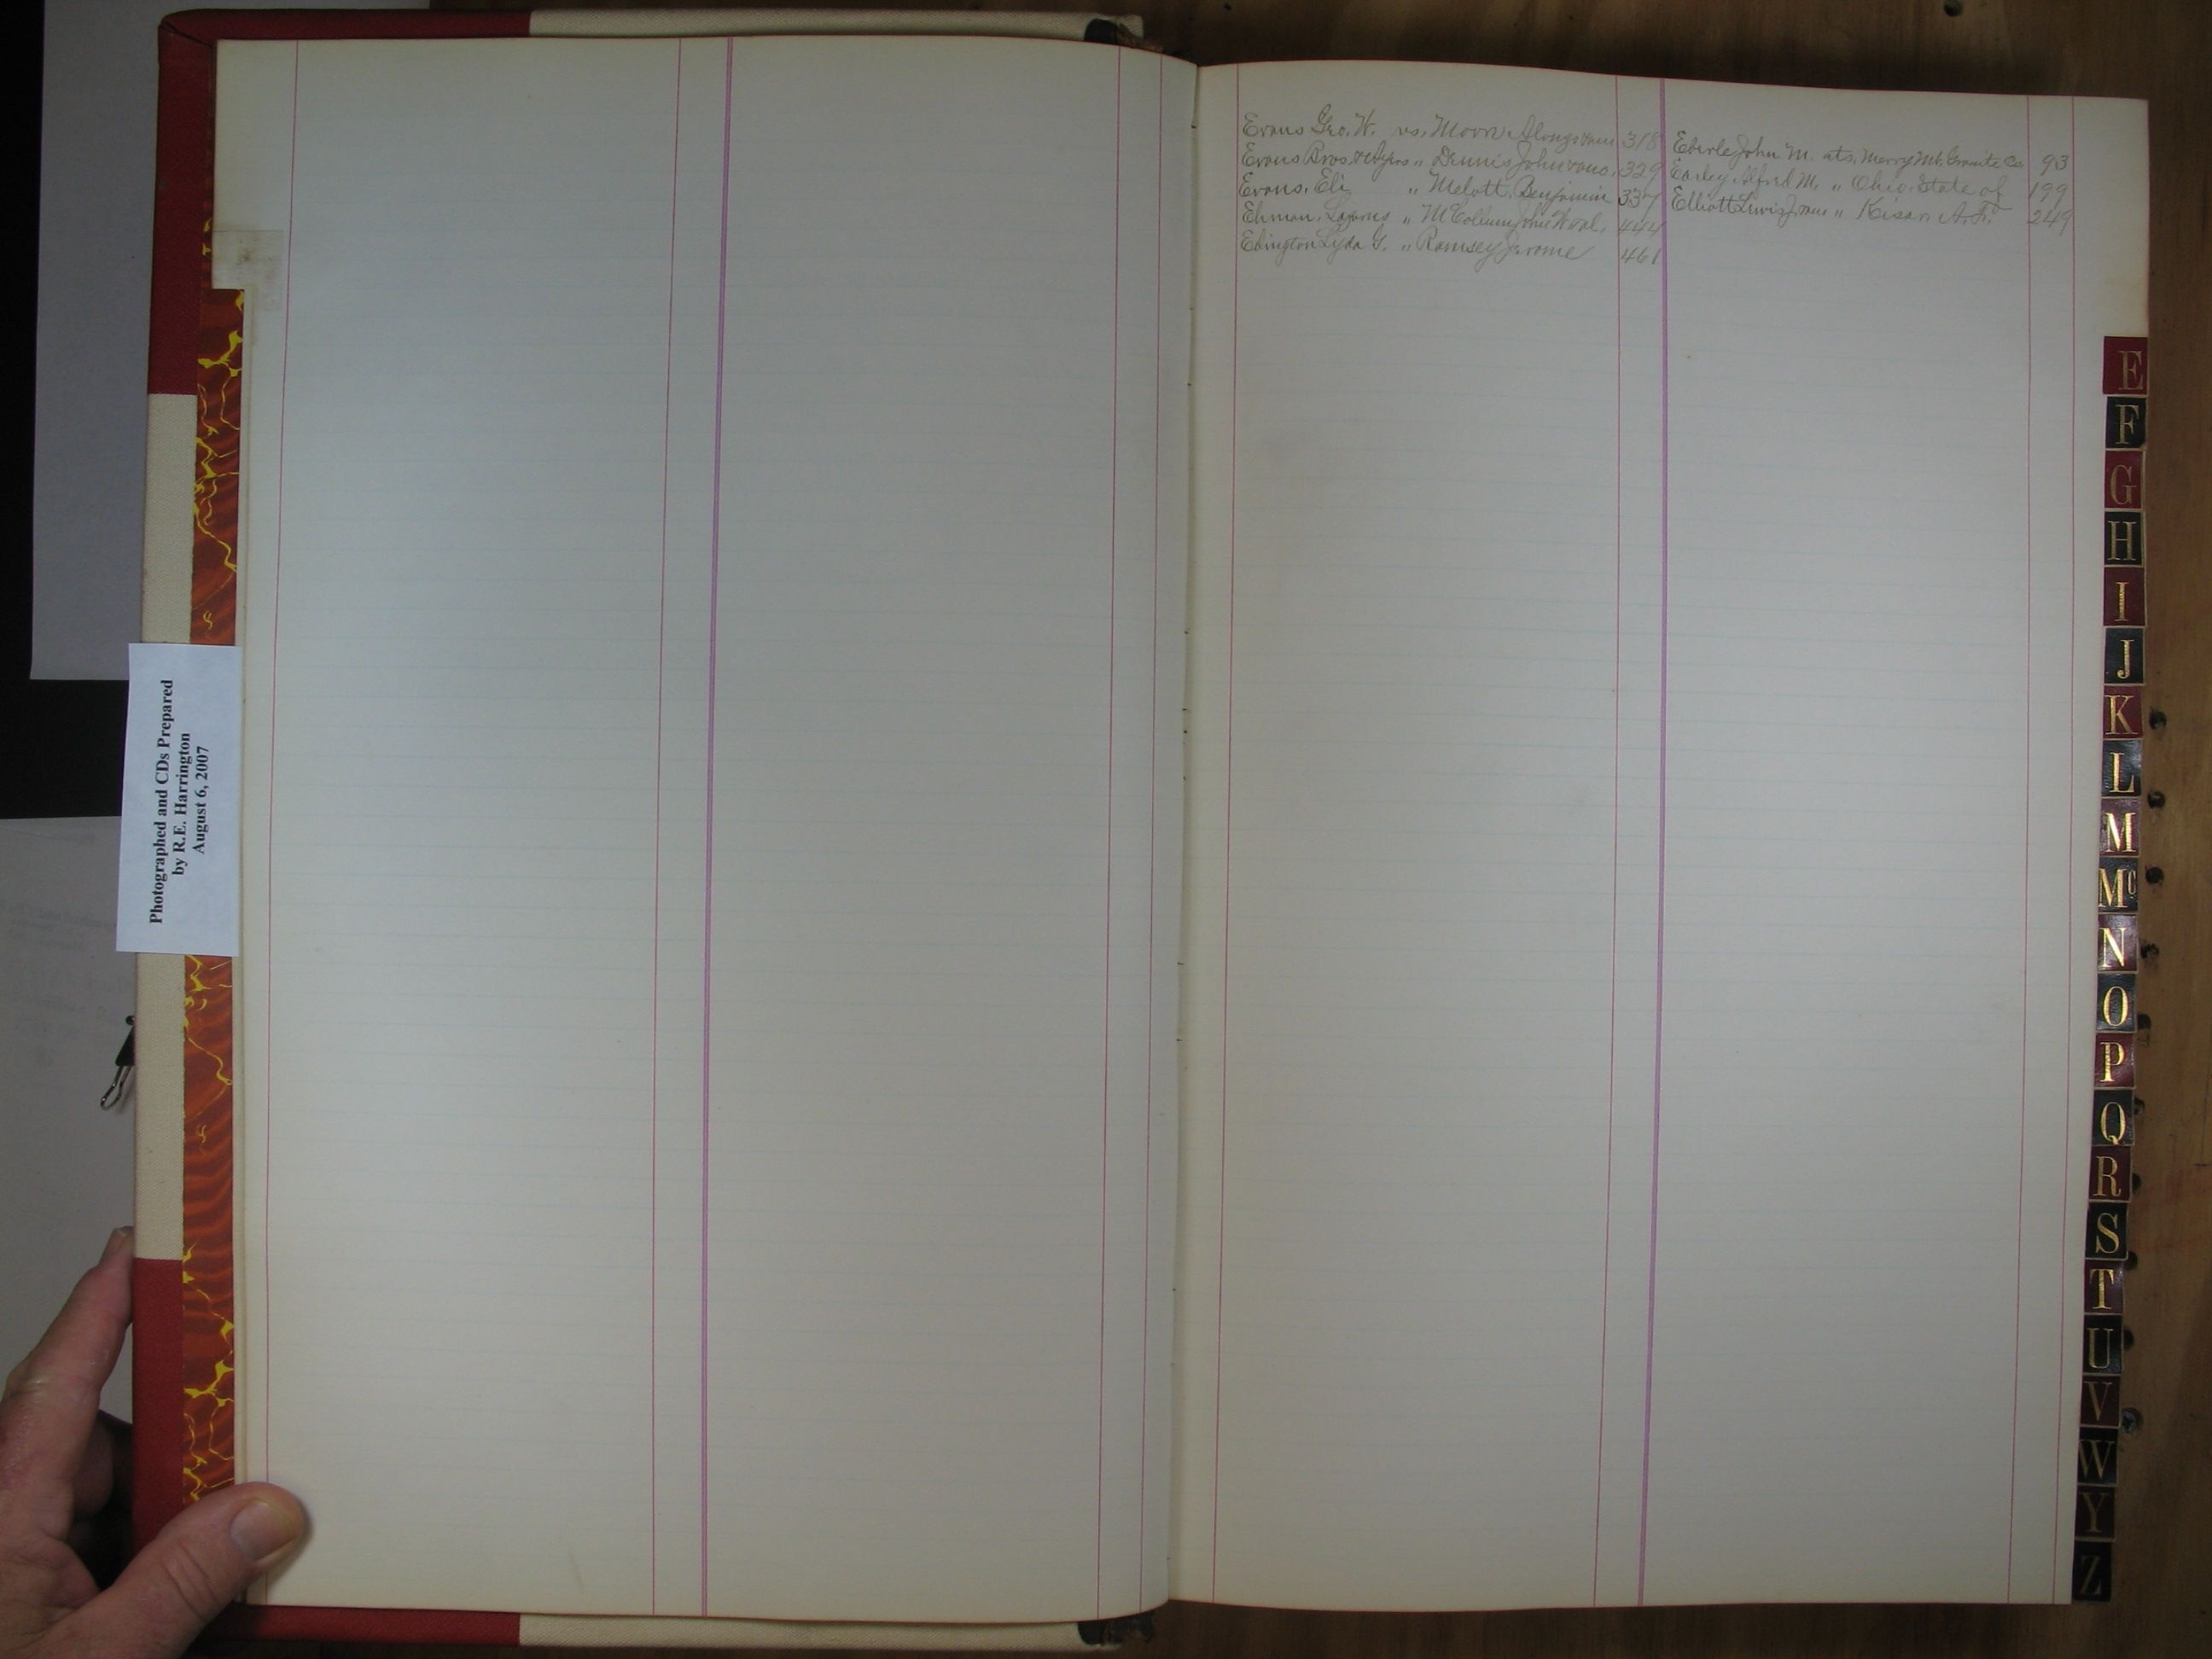 Photographed and CDs Prepared
by R.E. Harrington
August 6, 2007
Evans Geo. W. vs. Moon 318
Evans Bros & Ayers " Dennis John 329
Evans, Eli " Melott Benjamin 337
Ehman, " McCollum John W et al. 444
Ebington Lyda G. " Ramsey Jerome 461
Eberle John M. ats. Merry Mt. Granite Co. 93
Earley Alfred M. " Ohio State of 199
Elliott Lewis " A. F. 249
E
F
G
H
I
J
K
L
M
Mc
N
O
P
Q
R
S
T
U
V
W
Y
Z